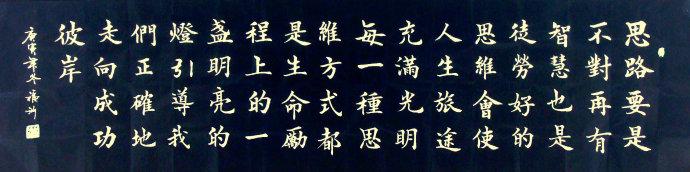 思路要是
不對再有
智慧也是
徒勞好的
思維會使
人生旅途
充滿光明
每一種思
維方式都
是生命勵
程上的一
盞明亮的
燈引導我
們正確地
走向成功
彼岸
庚寅年冬